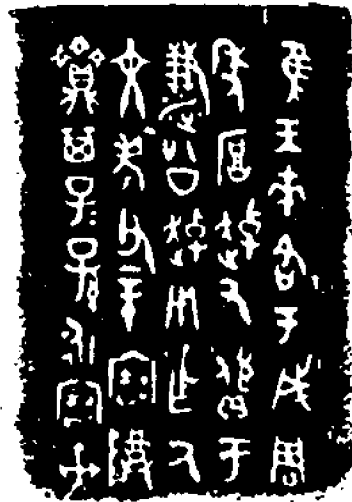 隹王來各于成周
年厚趠又㒸于
濂公趠用乍厥
文考父辛寶尊
齍其子=孫永寶束